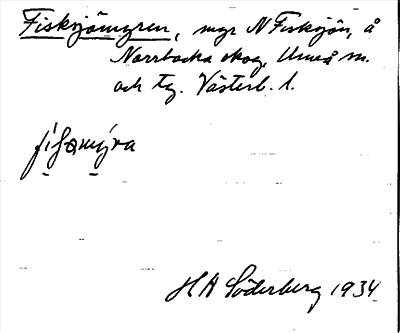 Fisksjömyren, myr N Fisksjön, å
Norrbacka skog, Umeå sn.
och tg. Västerb. l.
H A Söderberg 1934